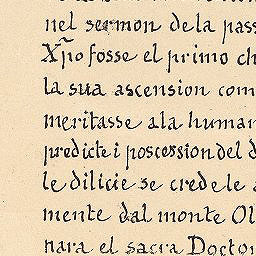 nel sermon de la pass
Xp̃o fosse el primo ch
la sua ascension com
meritasse a la human
predicte i possession del d
le dilicie se crede le a
mente dal monte Ol
nara el sacra Doctor